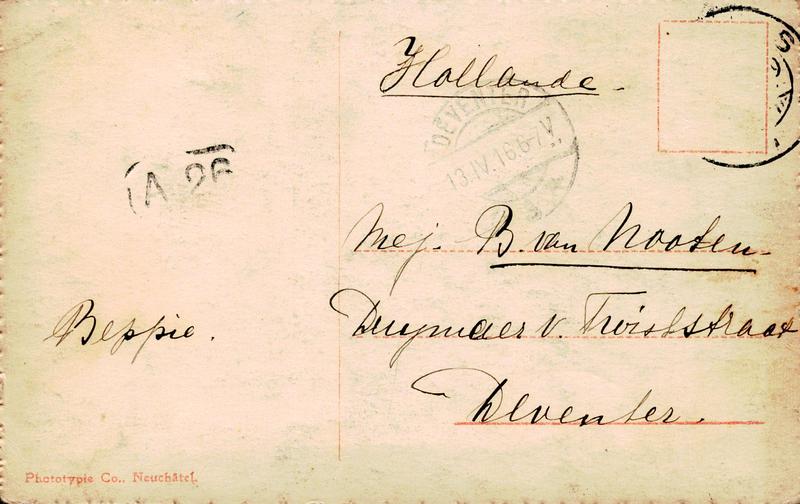 Hollande.
DEVENTER
13.IV.16.6-7V.
A 26
Mej. B. van Nooten
Duymaer v. Twiststraat
Deventer.
Beppie.
Phototypie Co., Neuchâtel.